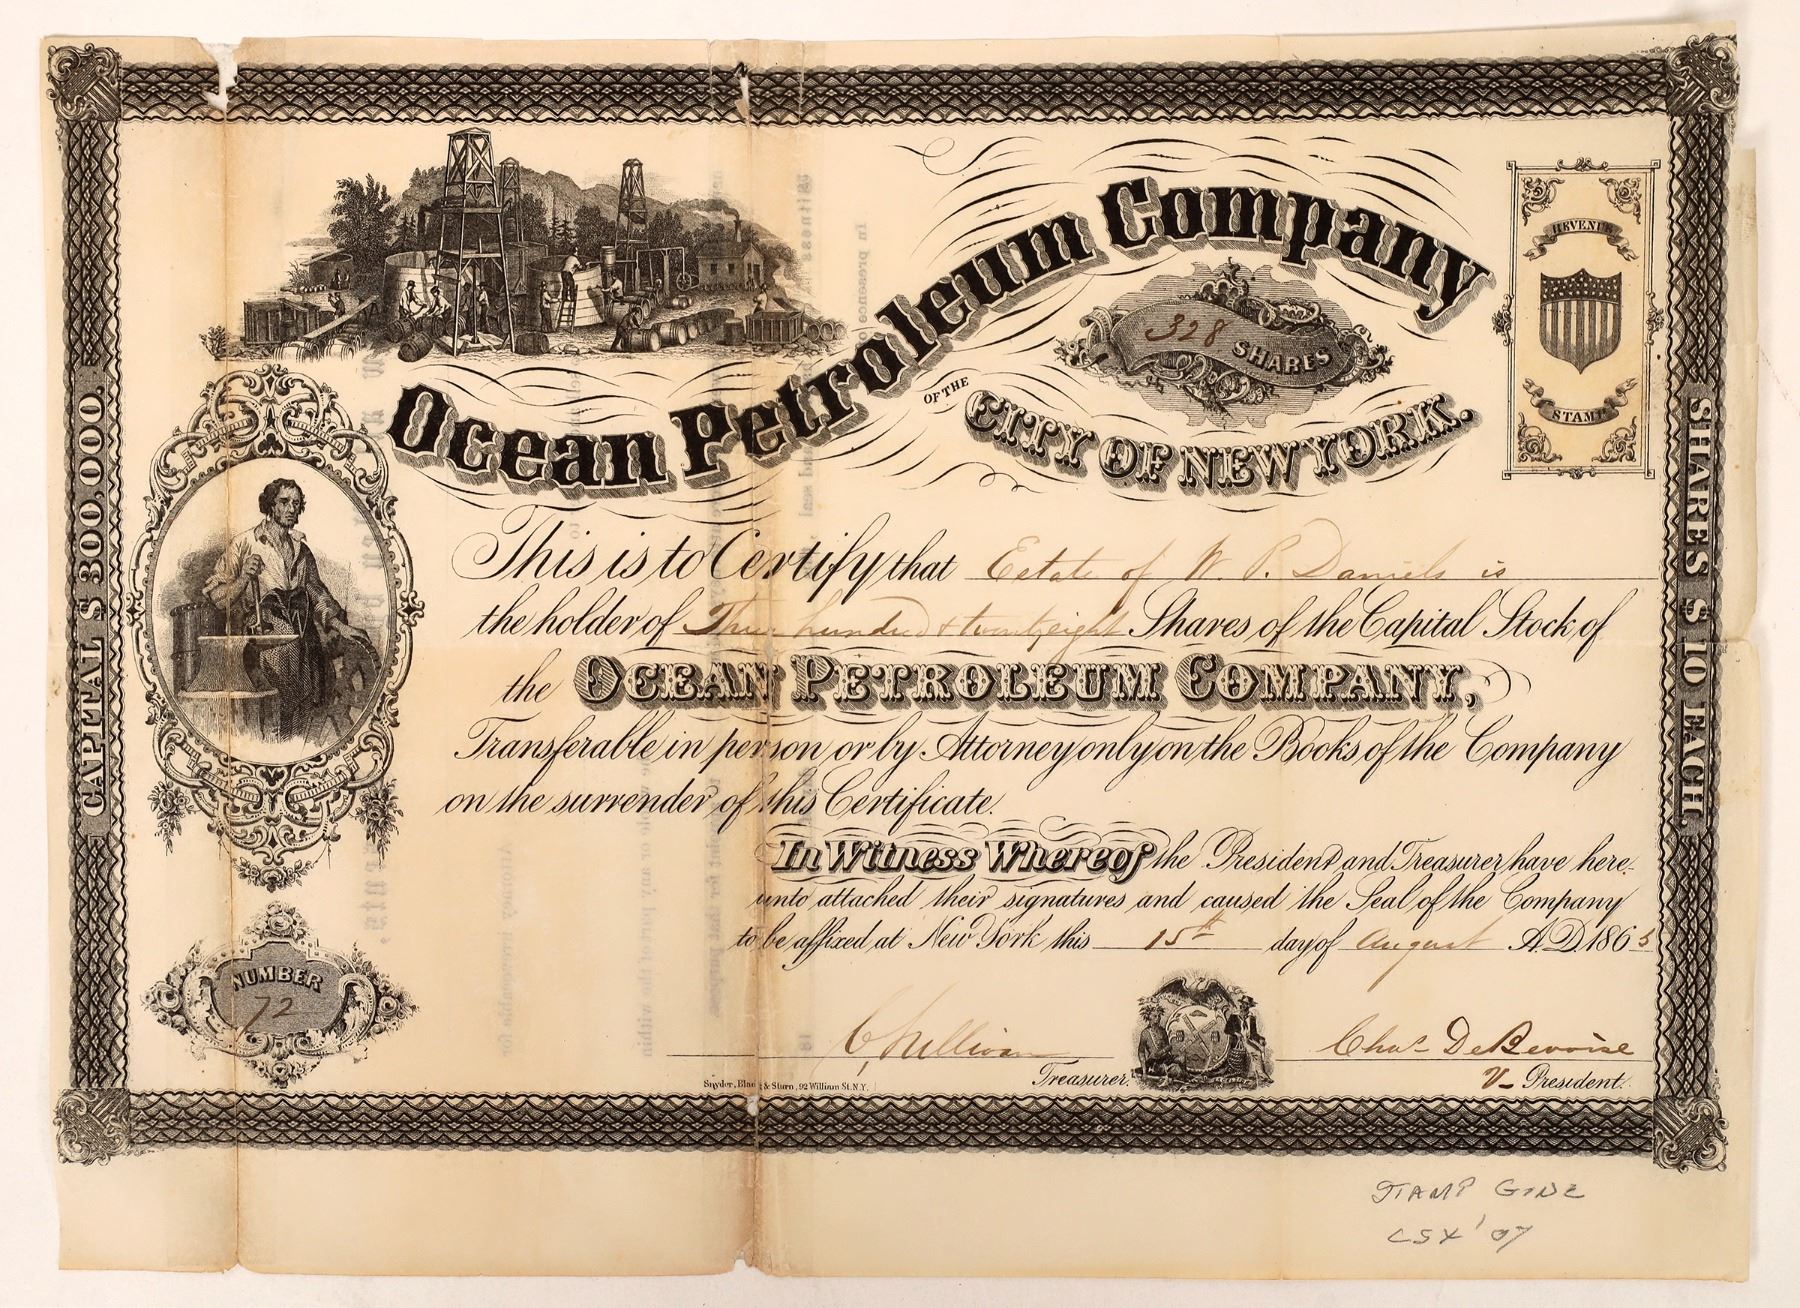 Ocean Petroleum Company
OF THE
CITY OF NEW YORK.
328 SHARES
REVENUE
STAMP
CAPITAL $ 300,000.
SHARES $ 10 EACH.
This is to Certify that Estate of W. P. Daniels is
the holder of Three hundred & twenty eight Shares of the Capital Stock of
the OCEAN PETROLEUM COMPANY,
Transferable in person or by Attorney only on the Books of the Company
on the surrender of this Certificate.
In Witness Whereof the President and Treasurer have here-
unto attached their signatures and caused the Seal of the Company
to be affixed at New York this 15th day of August A.D. 1865
NUMBER
72
C, Sullivan
Treasurer.
Chas DeBevoise
V- President.
Snyder, Black & Sturn, 92 William St. N.Y.
STAMP GONE
CSX '07